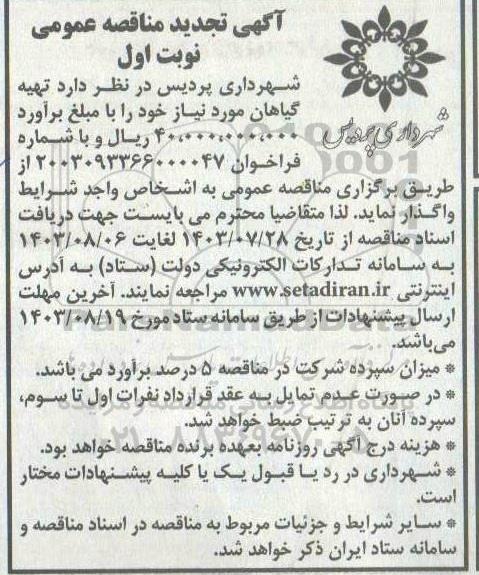 آگهی تجدید مناقصه عمومی
نوبت اول
شهرداری پردیس
شهرداری پردیس در نظر دارد تهیه
گیاهان مورد نیاز خود را با مبلغ برآورد
۴۰,۰۰۰,۰۰۰,۰۰۰ ریال و با شماره
فراخوان ۲۰۰۳۰۹۳۳۶۶۰۰۰۰۴۷ از
طریق برگزاری مناقصه عمومی به اشخاص واجد شرایط
واگذار نماید. لذا متقاضیا محترم می بایست جهت دریافت
اسناد مناقصه از تاریخ ۱۴۰۳/۰۷/۲۸ لغایت ۱۴۰۳/۰۸/۰۶
به سامانه تدارکات الکترونیکی دولت (ستاد) به آدرس
اینترنتی www.setadiran.ir مراجعه نمایند. آخرین مهلت
ارسال پیشنهادات از طریق سامانه ستاد مورخ ۱۴۰۳/۰۸/۱۹
می‌باشد.
* میزان سپرده شرکت در مناقصه ۵ درصد برآورد می باشد.
* در صورت عدم تمایل به عقد قرارداد نفرات اول تا سوم،
سپرده آنان به ترتیب ضبط خواهد شد.
* هزینه درج آگهی روزنامه بعهده برنده مناقصه خواهد بود.
* شهرداری در رد یا قبول یک یا کلیه پیشنهادات مختار
است.
* سایر شرایط و جزئیات مربوط به مناقصه در اسناد مناقصه و
سامانه ستاد ایران ذکر خواهد شد.